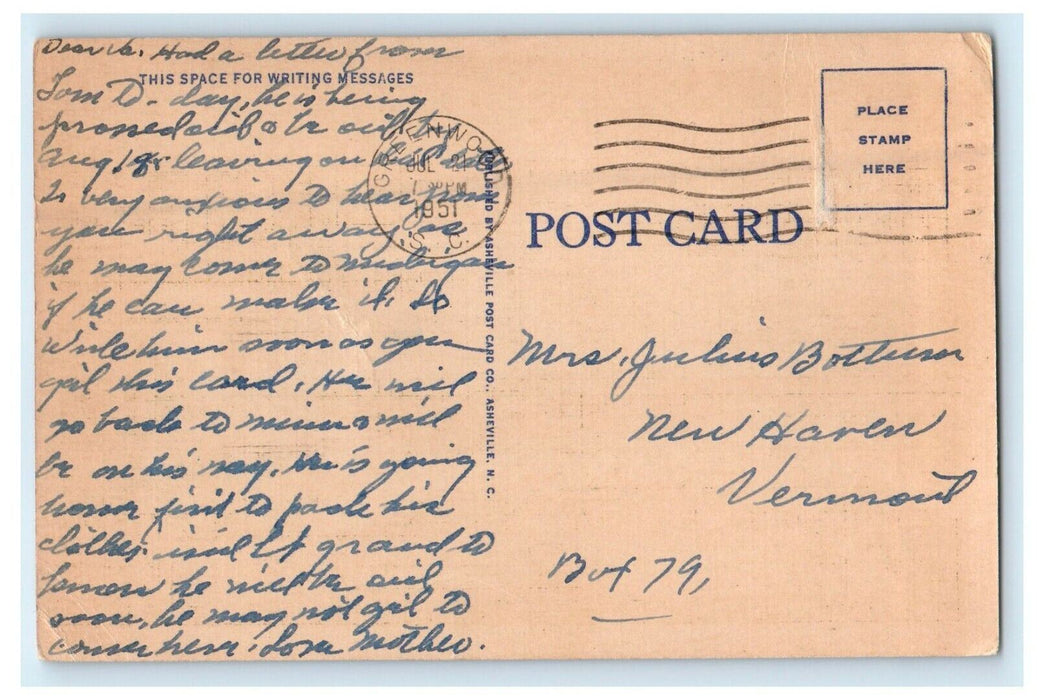 Dear Va. Had a letter from
THIS SPACE FOR WRITING MESSAGES
Tom To-day, he is being
processed will be out
Aug 1st leaving on
Is very anxious to hear from
you right away, as
he may come to Michigan
if he can make it. So
Write him soon as you
get this card. He will
go back to Minn & will
be on his way. He is going
home first to pack his
clothes. isn't it grand to
know he will be out
soon, he may not get to
come here. Love Mother.
GREENWOOD
JUL 21
PM
1951
S. C.
PUBLISHED BY ASHEVILLE POST CARD CO., ASHEVILLE, N. C.
PLACE
STAMP
HERE
POST CARD
Mrs. Julius Bottum
New Haven
Vermont
Box 79,